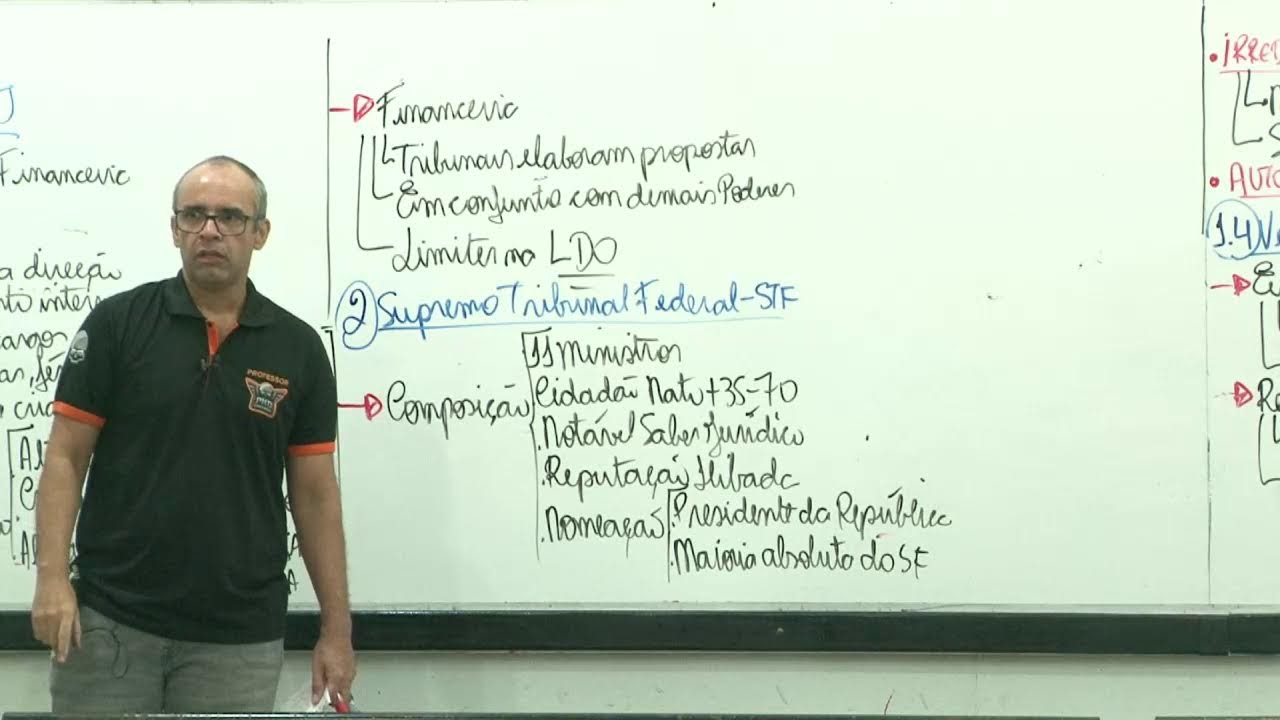 Financeira
a direção
cargos
PROFESSOR
Financeira
Tribunais elaboram propostas
Em conjunto com demais Poderes
Limites na LDO
2 Supremo Tribunal Federal-STF
Composição
11 Ministros
Cidadão Nato +35-70
.Notável Saber Jurídico
.Reputação Ilibada
.Nomeação
.Presidente da República
.Maioria absoluta do SF
1.4